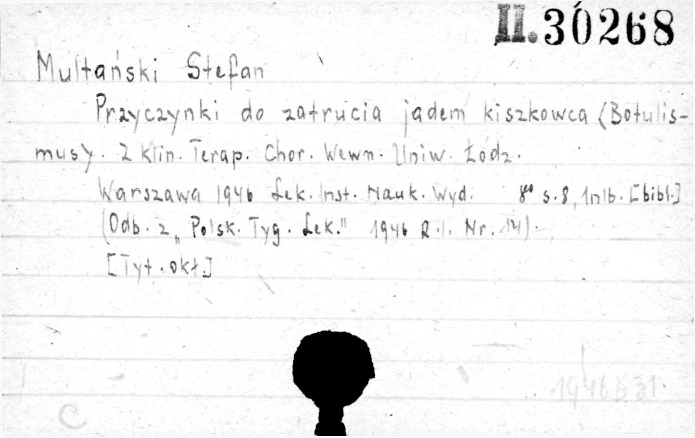 II.30268
Multański Stefan
Przyczynki do zatrucia jadem kiszkowca (Botulis-
musy. Z Klin. Terap. Chor. Wewn. Uniw. Łódz.
Warszawa 1946 Lek. Inst. Nauk. Wyd. 8° s. 8, 1 nlb. [bibl.]
(Odb. z "Polsk. Tyg. Lek." 1946 R. I. Nr. 14).
[Tyt. okł.]
1946 D 31
C